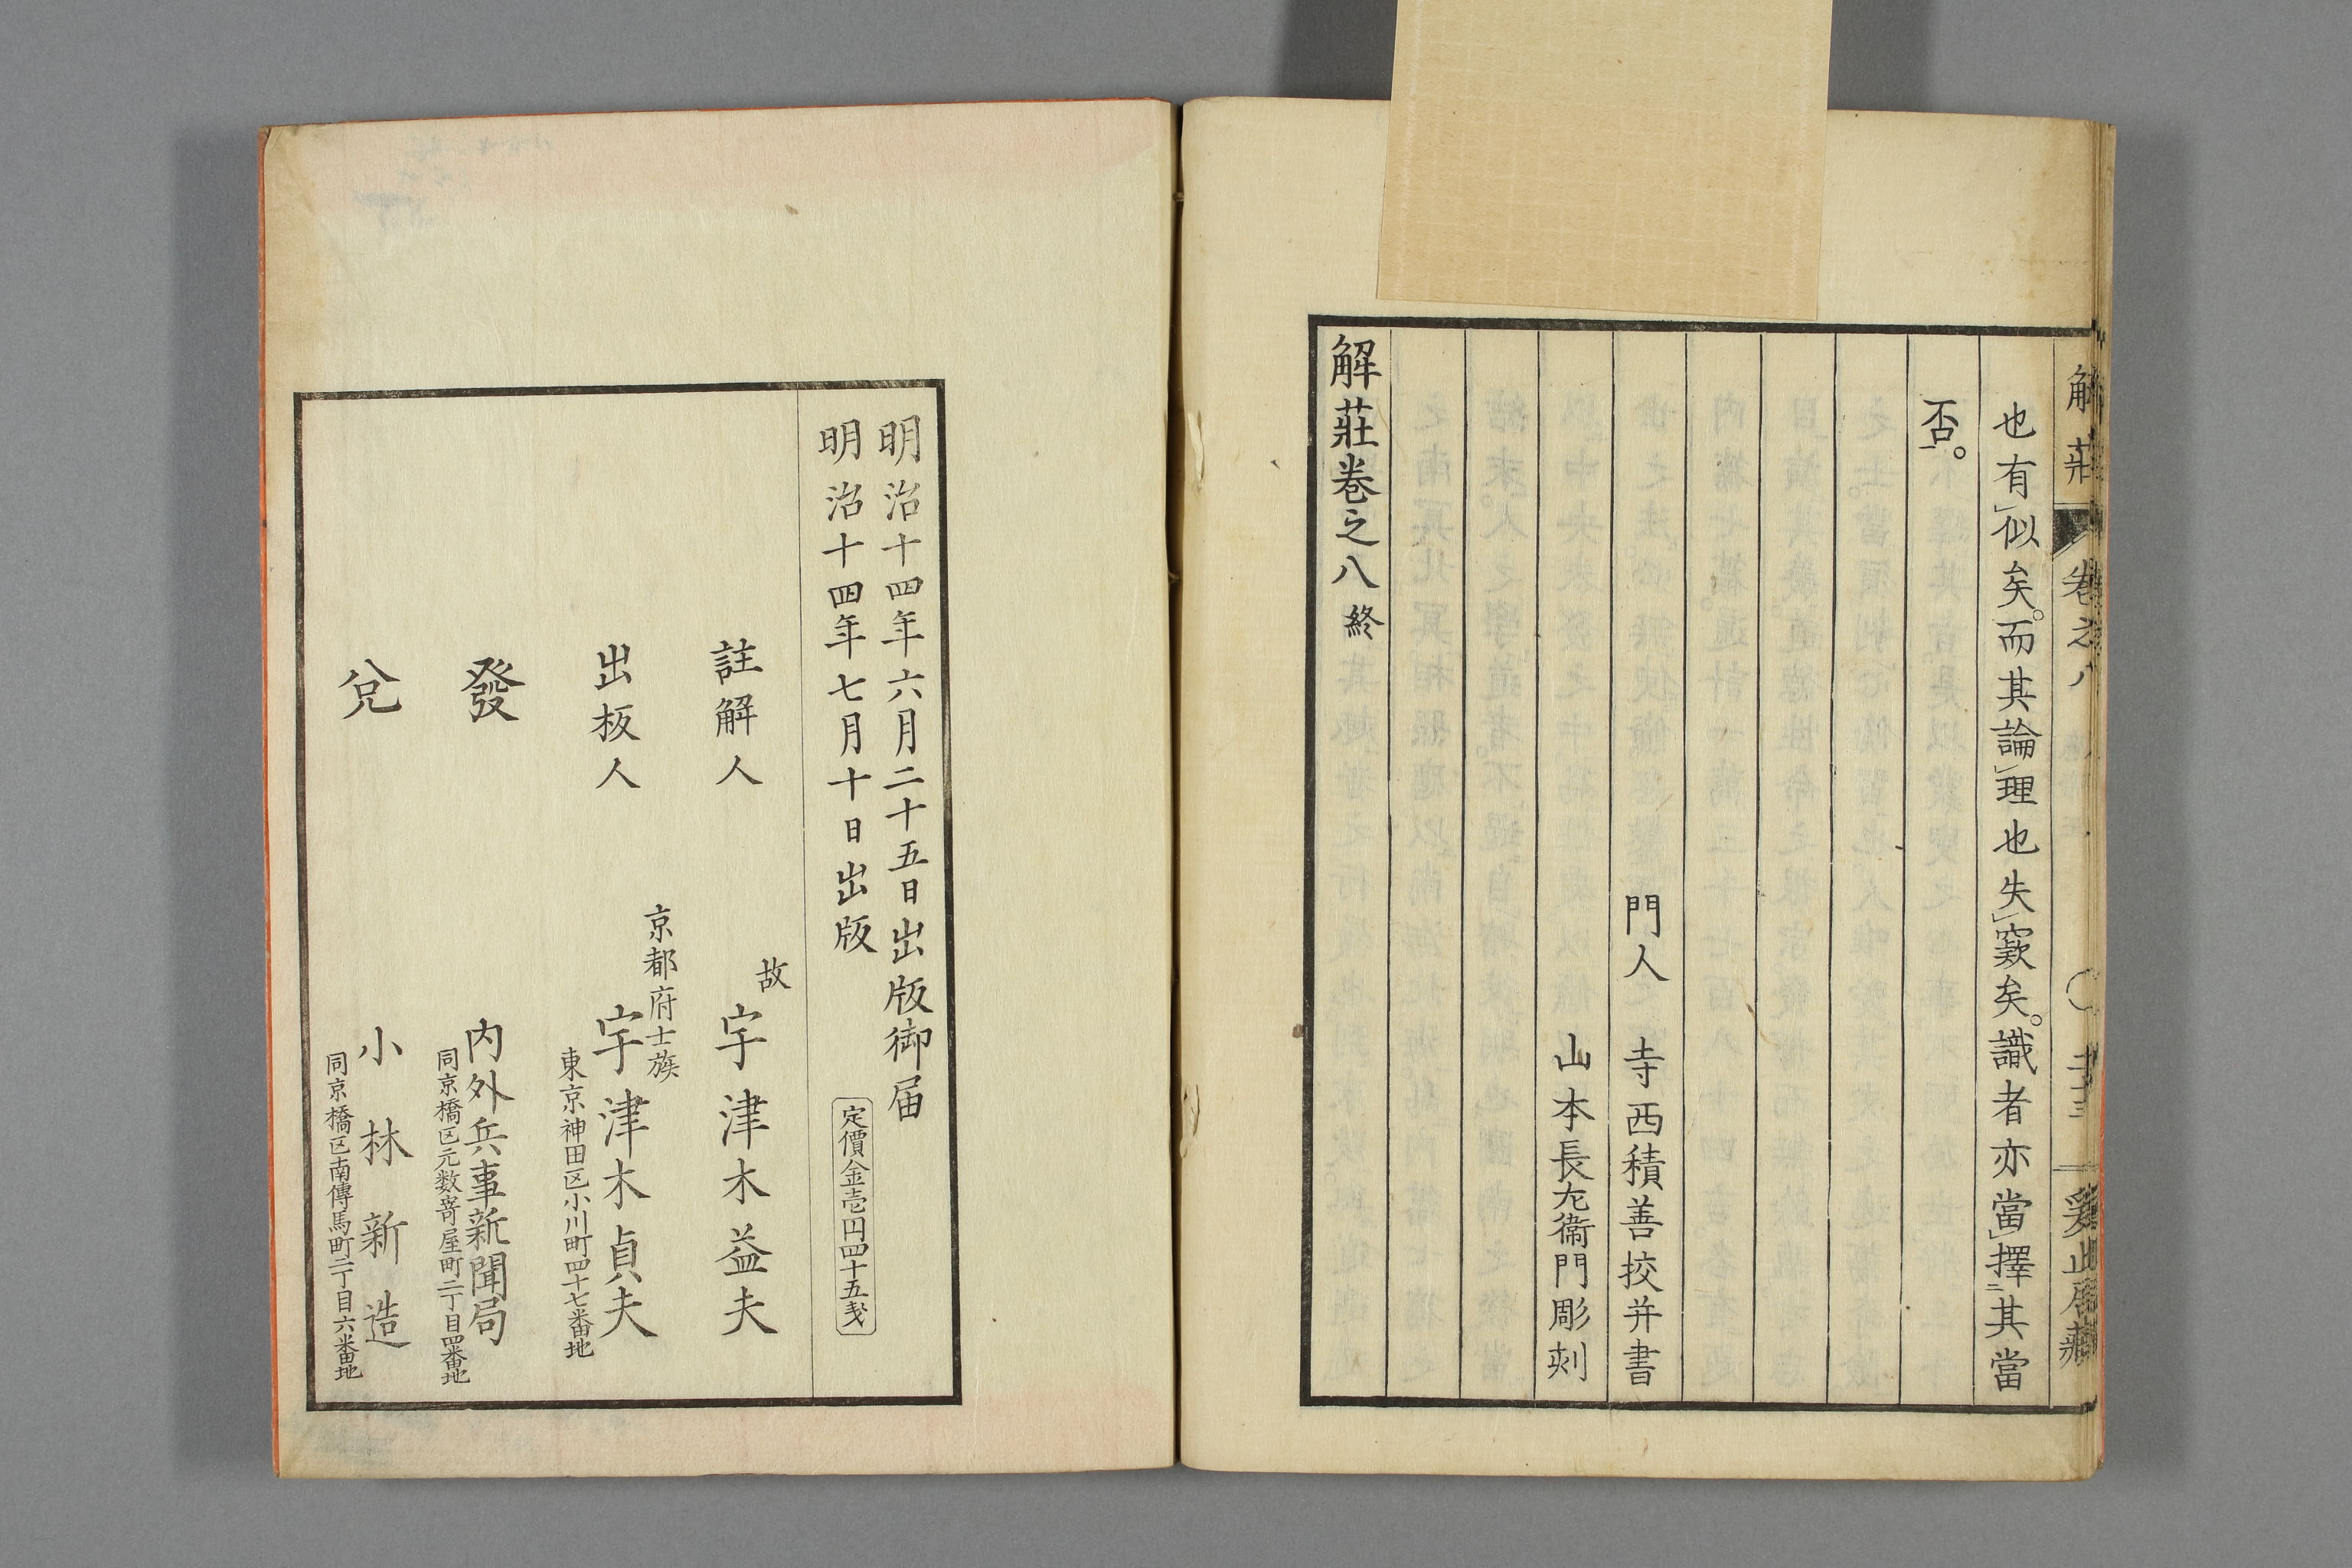 解莊 卷之八
也有似矣。而其論理也失窾矣。識者亦當擇二其當
否一。
門人 寺西積善挍并書
山本長左衞門彫刻
解莊卷之八終
明治十四年六月二十五日出版御届
明治十四年七月十日出版
定價金壱円四十五戔
註解人 故 宇津木益夫
出板人 京都府士族 宇津木貞夫
東京神田区小川町四十七番地
發 内外兵事新聞局
同京橋区元数寄屋町二丁目四番地
兌 小林新造
同京橋区南傳馬町二丁目六番地